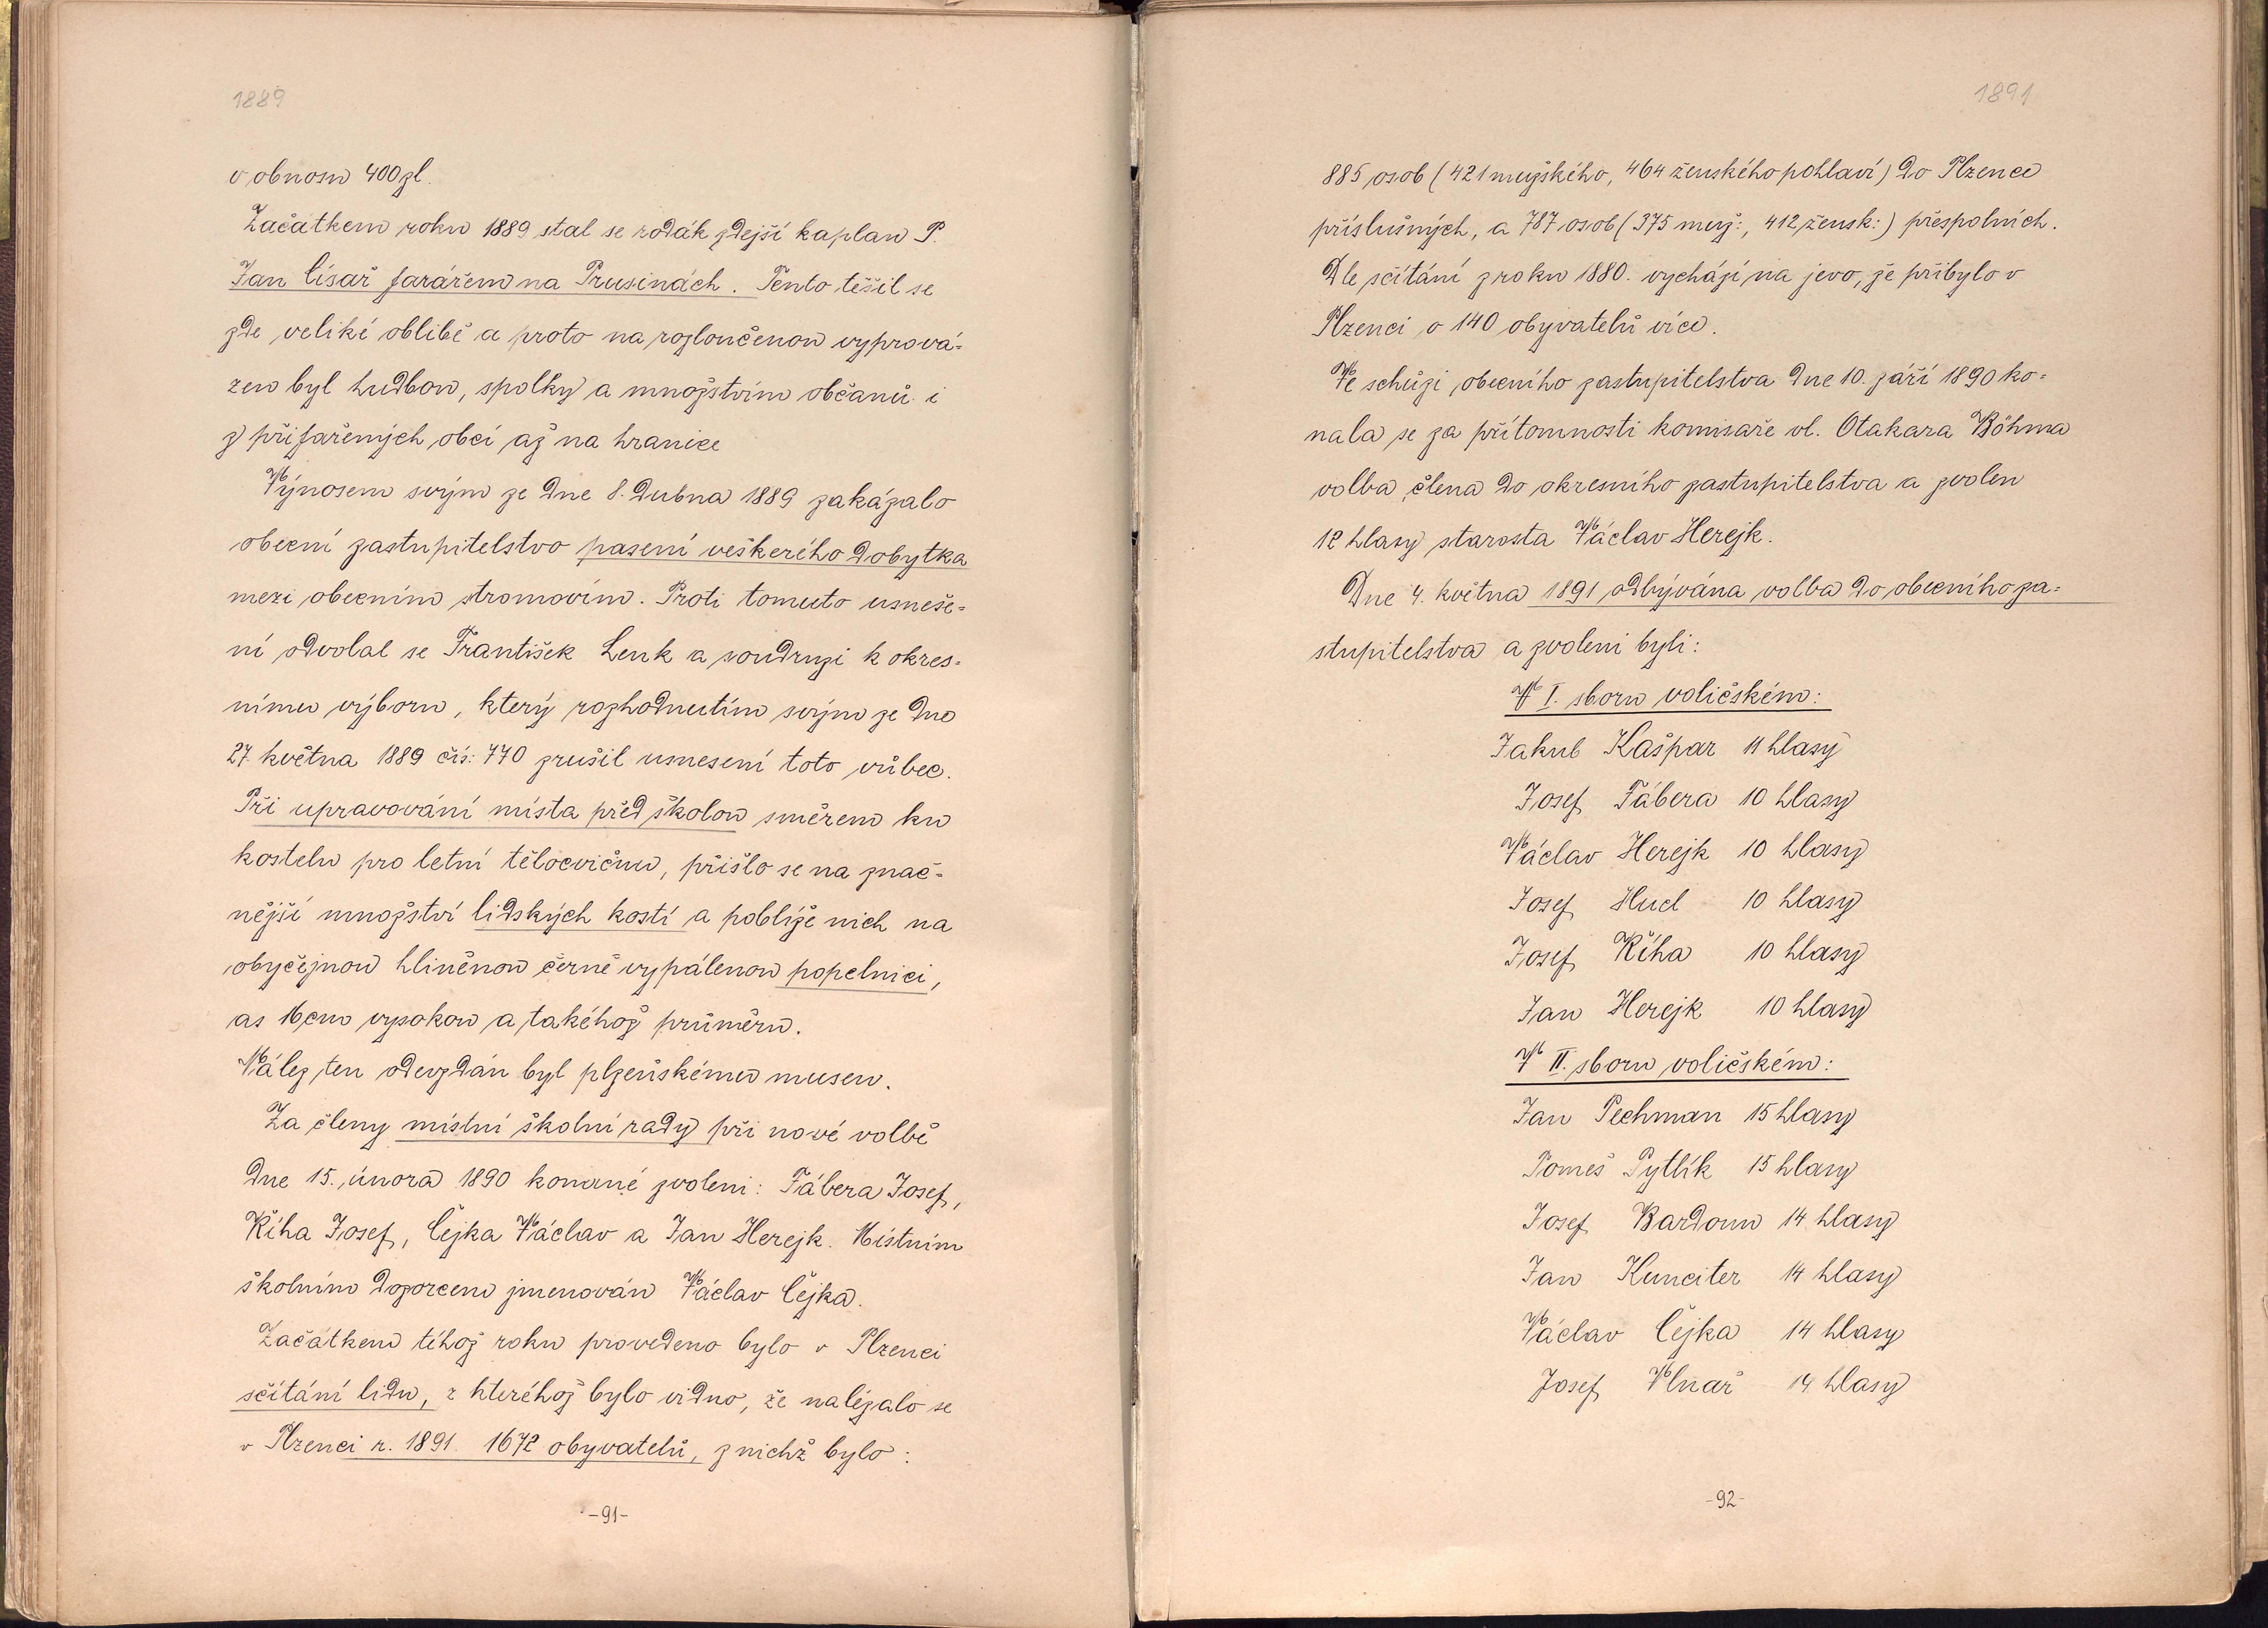 1889
v obnosu 400 zl.
Začátkem roku 1889 stal se rodák zdejší kaplan P.
Jan Císař farářem na Prusinách. Tento těšil se
zde veliké oblibě a proto na rozloučenou vyprová-
zen byl hudbou, spolky a množstvím občanů i
z přifařených obcí až na hranice
Výnosem svým ze dne 8. dubna 1889 zakázalo
obecní zastupitelstvo pasení veškerého dobytka
mezi obecním stromovím. Proti tomuto usneše-
ní odvolal se František Lenk a soudruzi k okres-
nímu výboru, který rozhodnutím svým ze dne
27. května 1889 čís: 770 zrušil usnesení toto vůbec.
Při upravování místa před školou směrem ku
kostelu pro letní tělocvičnu, přišlo se na znač-
nější množství lidských kostí a poblíže nich na
obyčejnou hliněnou černě vypálenou popelnici,
as 16 cm vysokou a takéhož průměru.
Nález ten odevzdán byl plzeňskému museu.
Za členy místní školní rady při nové volbě
dne 15. února 1890 konané zvoleni: Fábera Josef,
Říha Josef, Čejka Václav a Jan Herejk. Místním
školním dozorcem jmenován Václav Čejka.
Začátkem téhož roku provedeno bylo v Plzenci
sčítání lidu, z kteréhož bylo vidno, že nalézalo se
v Plzenci r. 1891. 1672 obyvatelů, z nichž bylo:
-91-
1891
885 osob (421 mužského, 464 ženského pohlaví) do Plzence
příslušných, a 787 osob (375 muž:, 412 žensk:) přespolních.
Dle sčítání z roku 1880. vychází na jevo, že přibylo v
Plzenci o 140 obyvatelů více.
Ve schůzi obecního zastupitelstva dne 10. září 1890 ko-
nala se za přítomnosti komisaře vl. Otakara Böhma
volba člena do okresního zastupitelstva a zvolen
12 hlasy starosta Václav Herejk.
Dne 4. května 1891 odbývána volba do obecního za-
stupitelstva a zvoleni byli:
V I. sboru voličském:
Jakub Kašpar 11 hlasy
Josef Fábera 10 hlasy
Václav Herejk 10 hlasy
Josef Hucl 10 hlasy
Josef Říha 10 hlasy
Jan Herejk 10 hlasy
V II. sboru voličském:
Jan Pechman 15 hlasy
Tomeš Pytlík 15 hlasy
Josef Bardoun 14 hlasy
Jan Kunciter 14 hlasy
Václav Čejka 14 hlasy
Josef Vlnař 14 hlasy
-92-